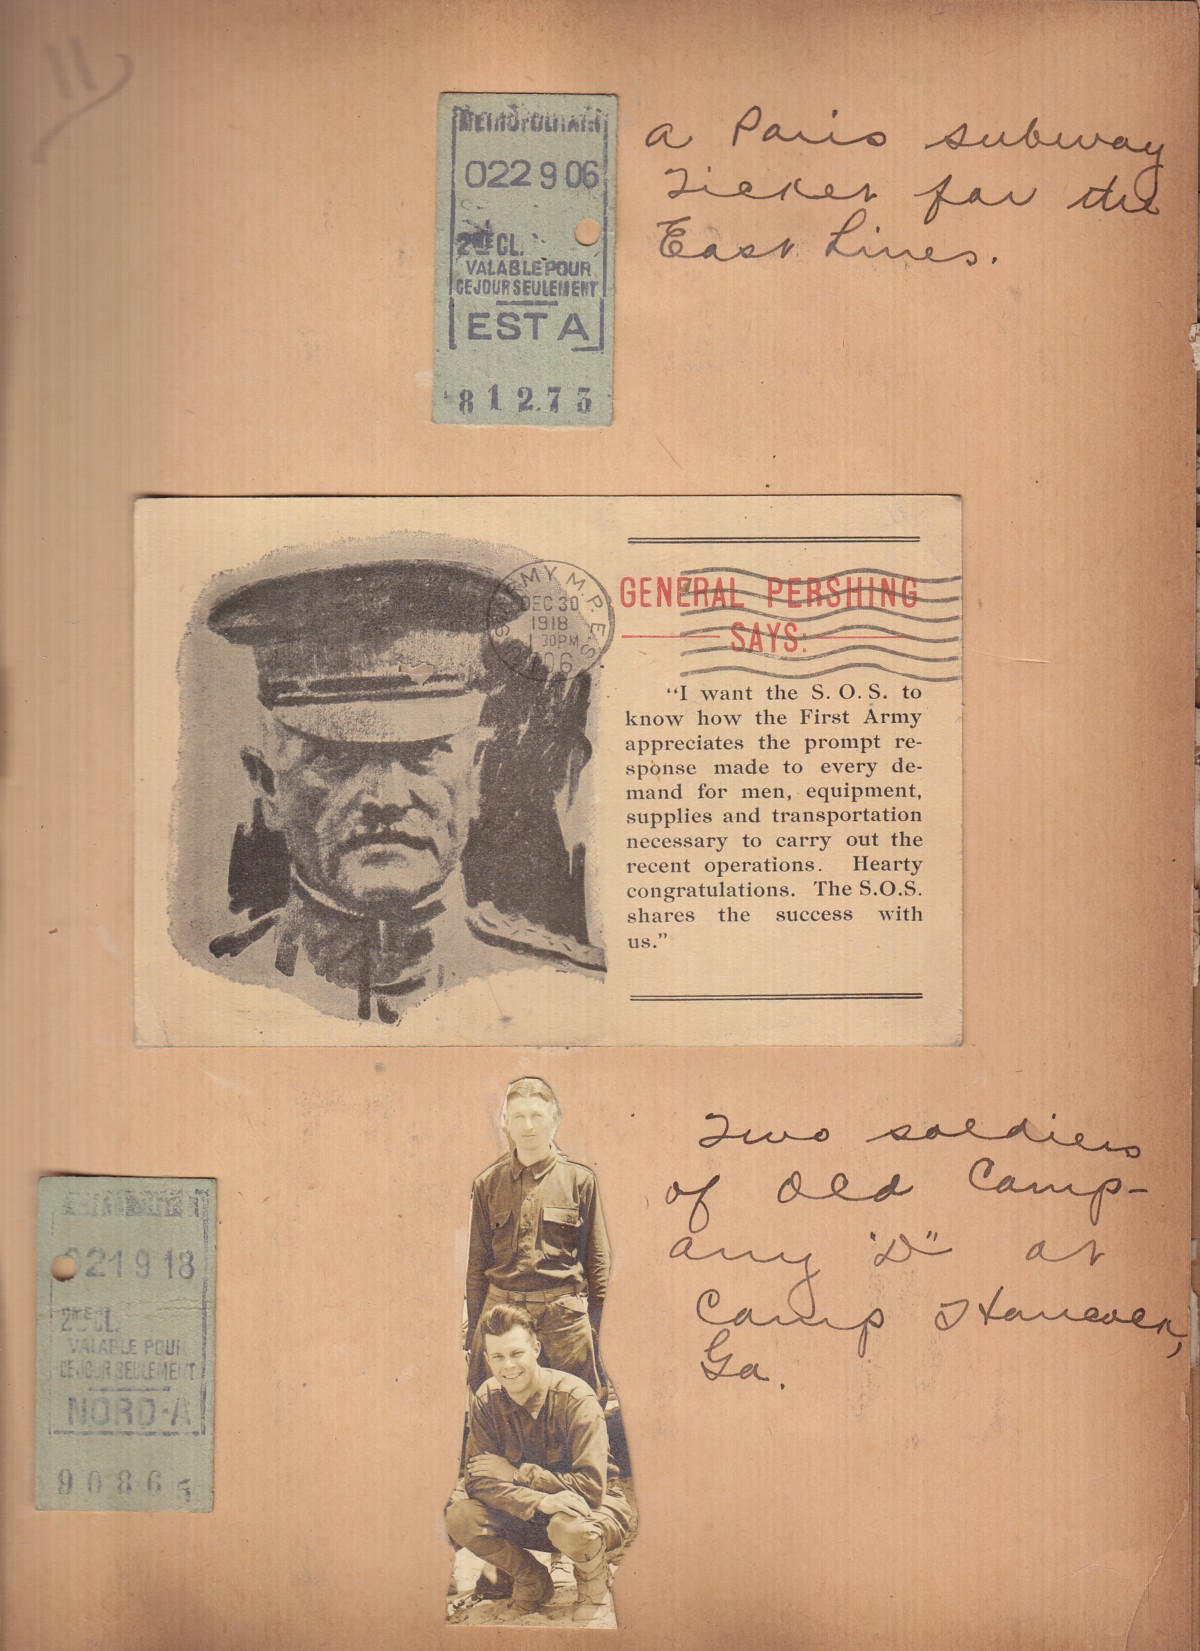 11
METROPOLITAIN
022 9 06
2ME CL.
VALABLE POUR
CE JOUR SEULEMENT
EST A
81273
a Paris subway
Ticket for the
East Lines.
ARMY M.P.E.S.
DEC 30
1918
1 30PM
GENERAL PERSHING
SAYS:
“I want the S. O. S. to
know how the First Army
appreciates the prompt re-
sponse made to every de-
mand for men, equipment,
supplies and transportation
necessary to carry out the
recent operations. Hearty
congratulations. The S.O.S.
shares the success with
us.”
Two soldiers
of Old Comp-
any "D" at
Camp Hancock,
Ga.
021 9 18
2ME CL.
VALABLE POUR
CE JOUR SEULEMENT
NORD-A
9086